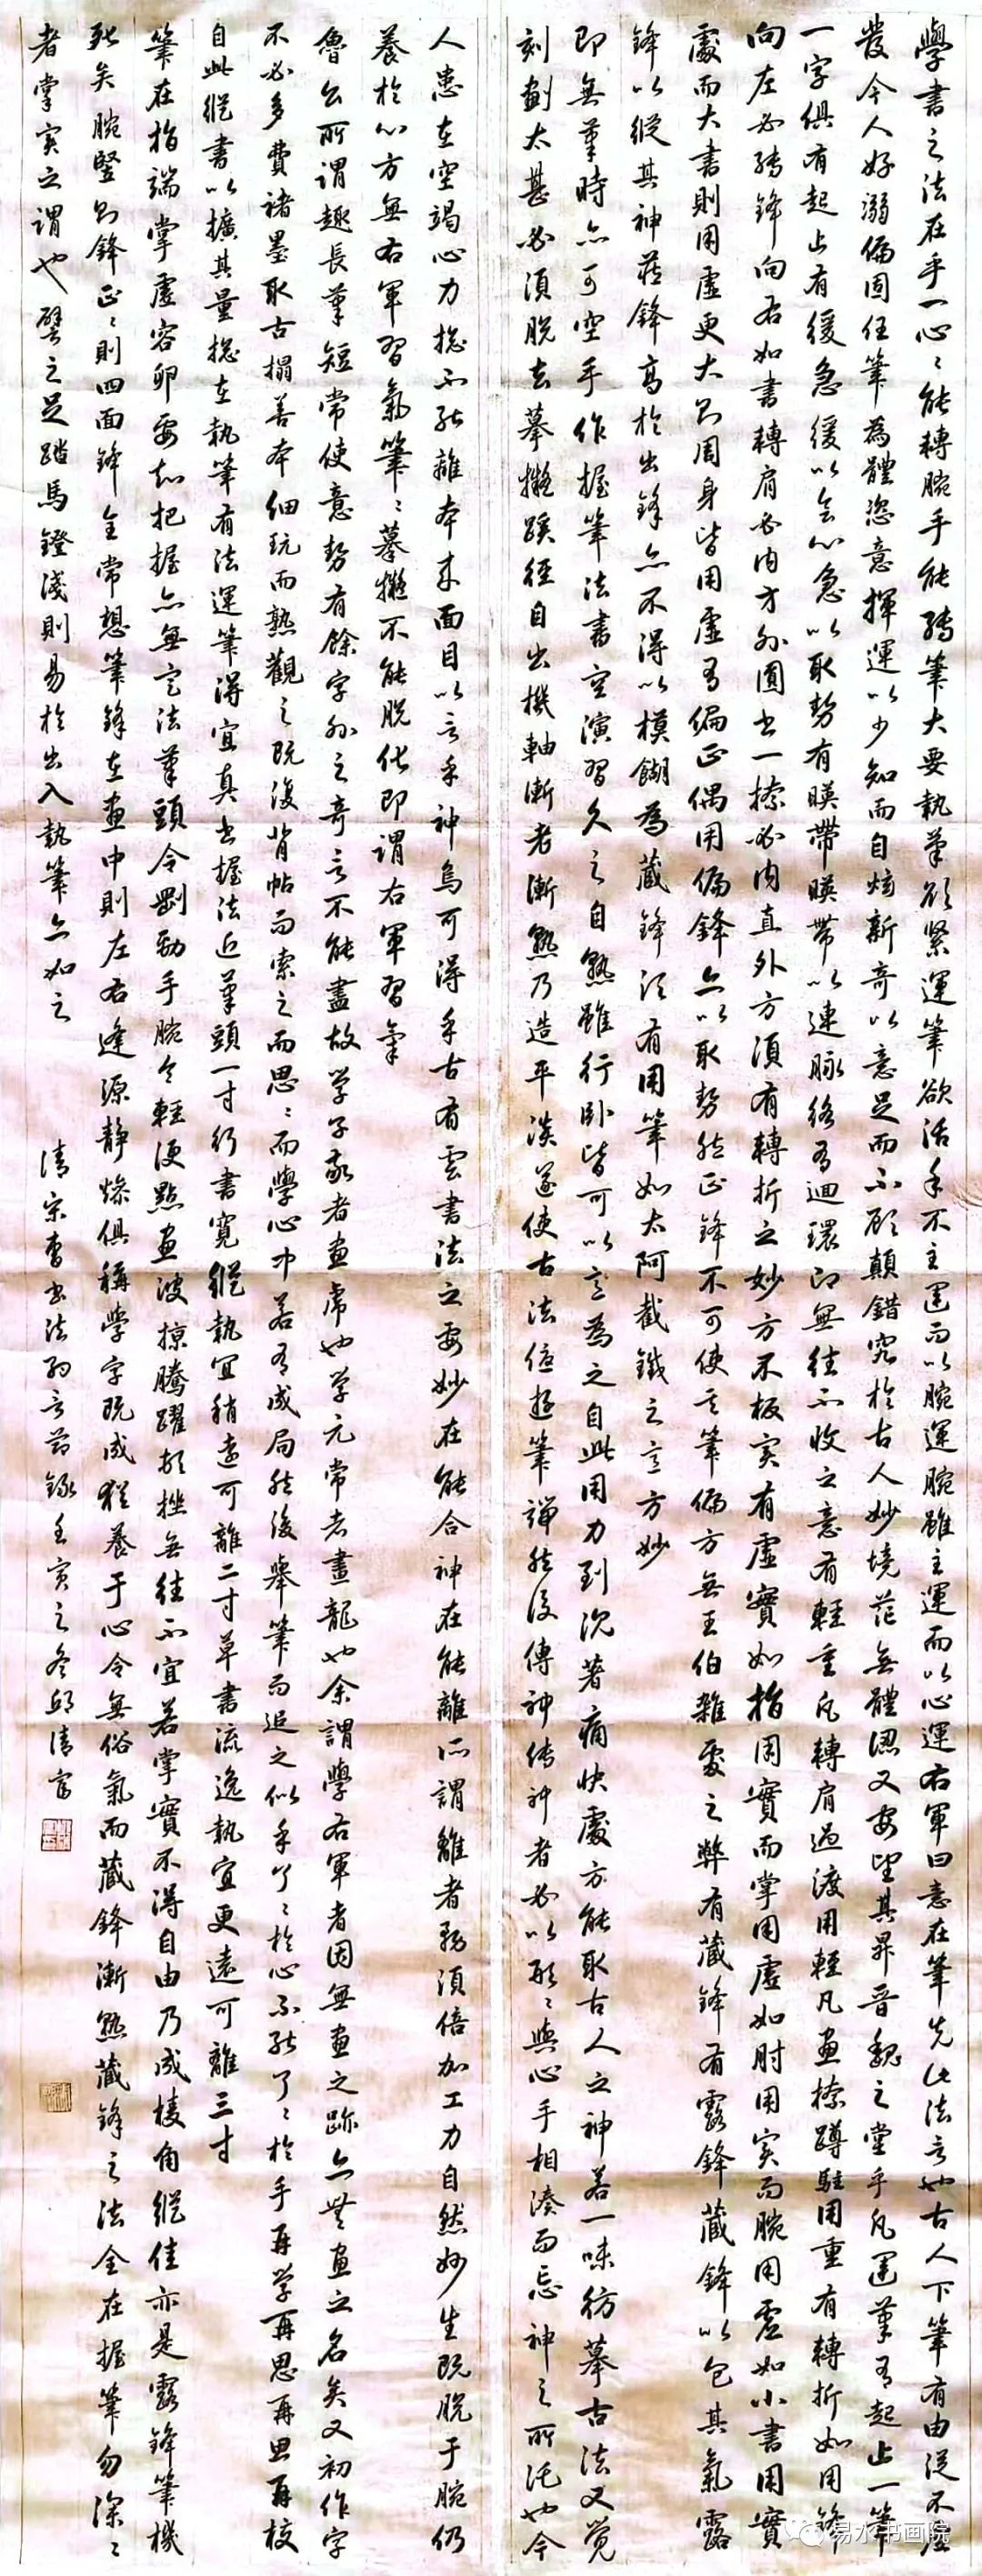 學書之法在乎一心〻能轉腕手能轉筆大要執筆欲緊運筆欲活手不主運而以腕運腕雖主運而以心運右軍曰意在筆先此法言也古人下筆有由從不虛
發今人好溺偏固任筆為體恣意揮運以少知而自炫新奇以意足而不顧顛錯究於古人妙境茫無體認又安望其昇晉魏之堂乎凡運筆有起止一筆
一字俱有起止有緩急緩以會心急以取勢有暎帶暎帶以連脉絡有迴環即無往不收之意有輕重凡轉肩過渡用輕凡畫捺蹲駐用重有轉折如用鋒
向左必轉鋒向右如書轉肩必內方外圓書一捺必內直外方須有轉折之妙方不板實有虛實如指用實而掌用虛如肘用實而腕用虛如小書用實
處而大書則用虛更大則周身皆用虛有偏正偶用偏鋒亦以取勢然正鋒不可使其筆偏方無王伯雜處之弊有藏鋒有露鋒藏鋒以包其氣露
鋒以縱其神藏鋒高於出鋒亦不得以模餬為藏鋒須有用筆如太阿截鐵之意方妙
即無筆時亦可空手作握筆法書空演習久之自熟雖行臥皆可以意為之自此用力到沉著痛快處方能取古人之神若一味彷摹古法又覺
刻劃太甚必須脫去摹擬蹊徑自出機軸漸老漸熟乃造平淡遂使古法優游筆端然後傳神傳神者必以形〻與心手相湊而忘神之所託也今
人患在空竭心力總不能離本來面目以言乎神烏可得乎古有雲書法之要妙在能合神在能離所謂離者務須倍加工力自然妙生既脫于腕仍
養於心方無右軍習氣筆〻摹擬不能脫化即謂右軍習氣
魯公所謂趣長筆短常使意勢有餘字外之奇言不能盡故學子敬者畫虎也學元常者畫龍也余謂學右軍者因無畫之跡亦無畫之名矣又初作字
不必多費諸墨取古搨善本細玩而熟觀之既復背帖而索之而思〻而學心中若有成局然後舉筆而追之似乎了〻於心不能了〻於手再學再思再思再校
自此縱書以擴其量總在執筆有法運筆得宜真書握法近筆頭一寸行書寬縱執宜稍遠可離二寸草書流逸執宜更遠可離三寸
筆在指端掌虛容卵要知把握亦無定法筆頭令剛勁手腕令輕便點畫波掠騰躍頓挫無往不宜若掌實不得自由乃成棱角縱佳亦是露鋒筆機
死矣腕豎則鋒正〻則四面鋒全常想筆鋒在畫中則左右逢源靜燥俱稱學字既成猶養于心令無俗氣而藏鋒漸熟藏鋒之法全在握筆勿深〻
者掌實之謂也譬之足踏馬鐙淺則易於出入執筆亦如之
清宋曹書法約言節錄壬寅之冬邱清富
易水书画院